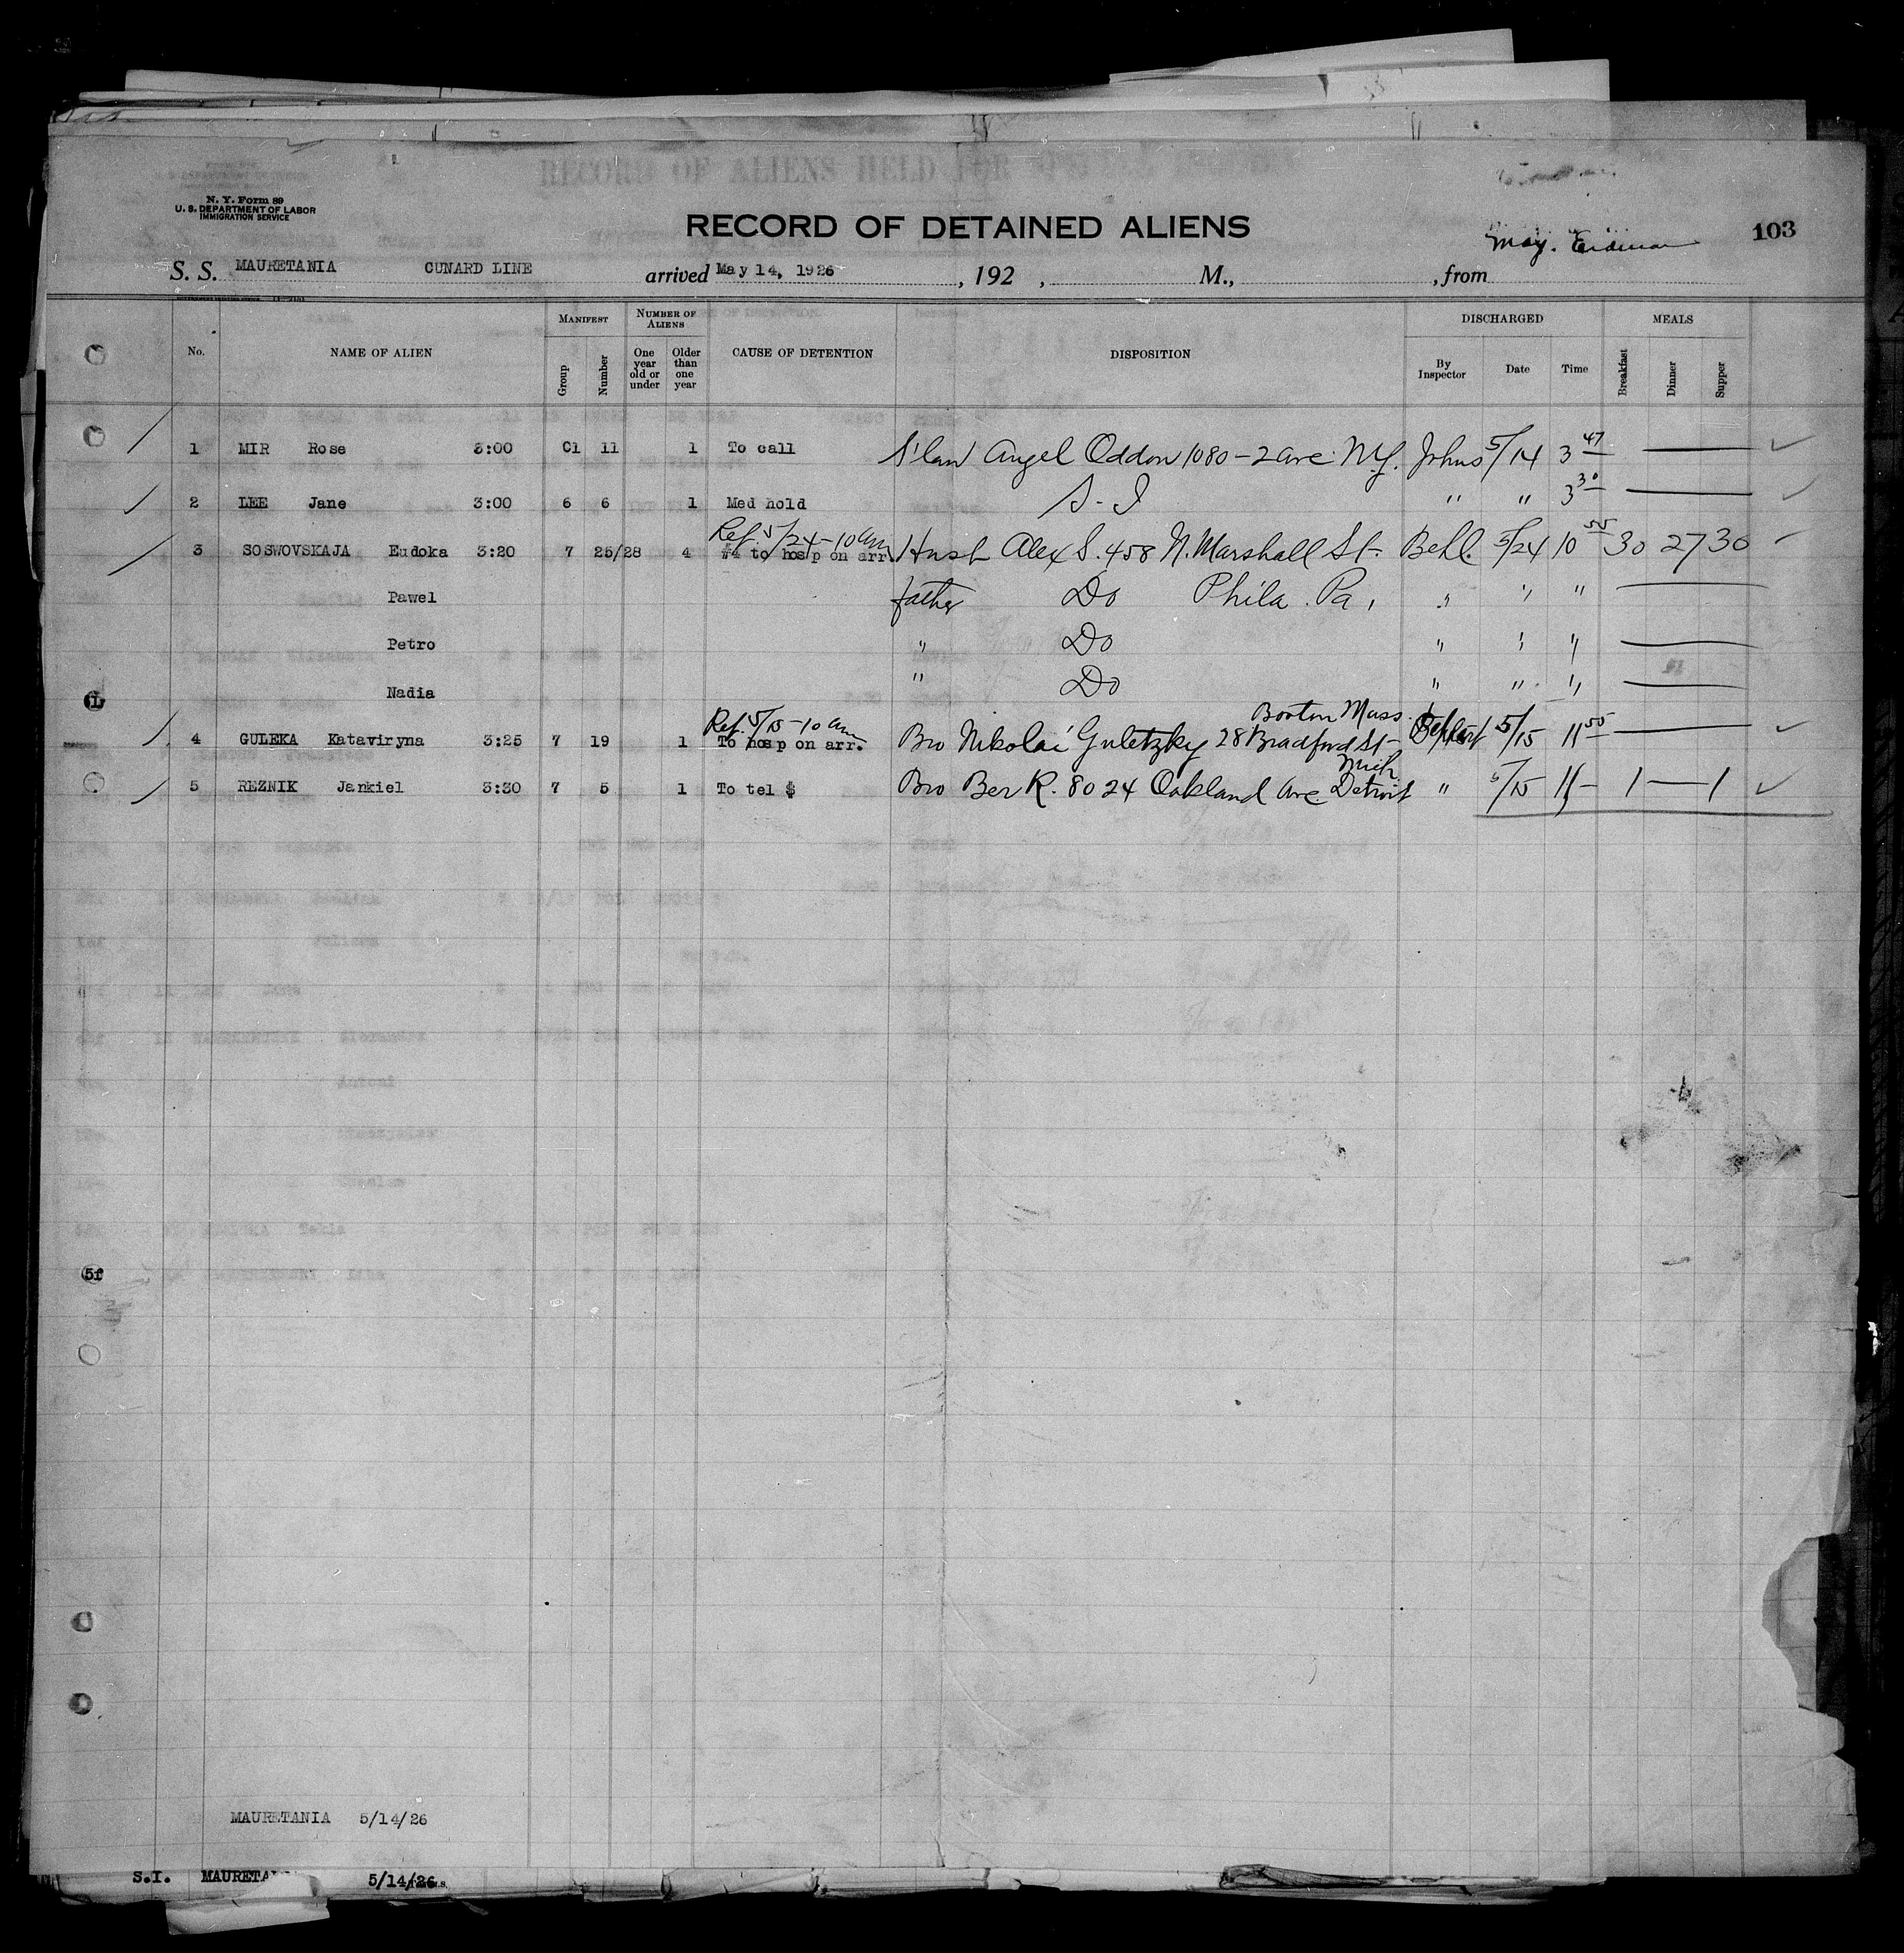 N. Y. Form 89
U. S. DEPARTMENT OF LABOR
IMMIGRATION SERVICE
RECORD OF ALIENS HELD FOR
RECORD OF DETAINED ALIENS
103
S. S. MAURETANIA CUNARD LINE arrived May 14, 1926, 192 , M., , from
No. NAME OF ALIEN MANIFEST Group Number NUMBER OF ALIENS One year old or under Older than one year CAUSE OF DETENTION DISPOSITION DISCHARGED By Inspector Date Time MEALS Breakfast Dinner Supper
1 MIR Rose 3:00 Cl 11 1 To call S'law Angel Oddon 1080-2 ave. N.Y. Johns 5/14 3 47
2 LEE Jane 3:00 6 6 1 Med hold S-I " " 3 30
Ref. 5/24-10 am
3 SOSWOVSKAJA Eudoka 3:20 7 25/28 4 #4 to hosp on arr. Husb Alex S. 458 N. Marshall St- Behl. 5/24 10 55 30 27 30
Pawel father Do Phila. Pa, " " "
Petro " Do " " "
Nadia " Do " " "
Ref. 5/15-10 am Boston Mass.
4 GULEKA Kataviryna 3:25 7 19 1 To hosp on arr. Bro Nikolai Guletzky 28 Bradford St- 5/15 11 55
Mich
5 REZNIK Jankiel 3:30 7 5 1 To tel $ Bro Ber R. 8024 Oakland Ave. Detroit " 5/15 11- 1 — 1
MAURETANIA 5/14/26
S.I. MAURETA 5/14/26